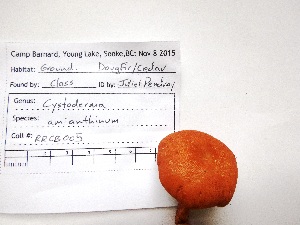 Camp Barnard, Young Lake, Sooke,BC: Nov 8 2015
Habitat: Ground. Dougfir/Cedar
Found by: Class ID by: Juliet Pendray
Genus: Cystoderma
Species: amianthinum
Coll #: RRCB005